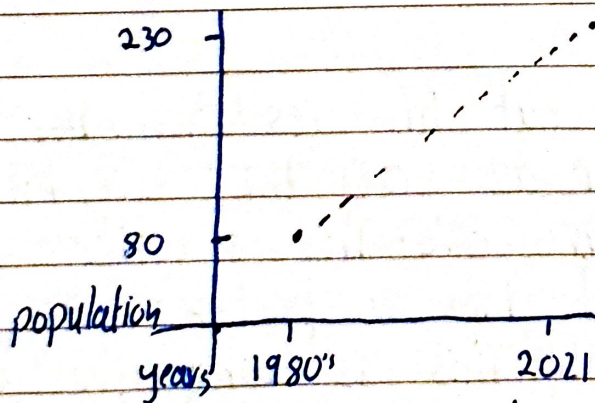 230
80
population
years 1980's 2021